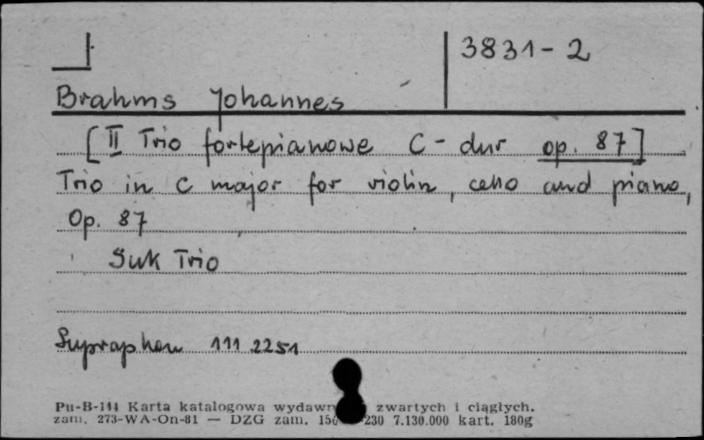 3831-2
Brahms Johannes
[II Trio fortepianowe C-dur op. 87]
Trio in C major for violin, cello and piano,
Op. 87
Suk Trio
Supraphon 111 2251
Pu-B-144 Karta katalogowa zwartych i ciągłych.
zam. 273-WA-On-81 — DZG zam. 230 7.130.000 kart. 180g